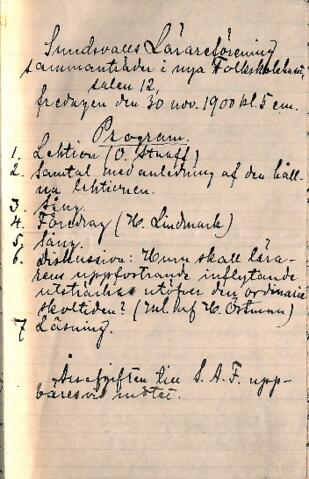 Sundsvalls Lärareförening
sammanträder i nya Folkskolehuset,
salen 12,
fredagen den 30 nov. 1900 kl. 5 em.
Program.
1. Lektion (O. Staaff)
2. Samtal med anledning af den håll-
na lektionen.
3. Sång.
4. Föredrag (H. Lindmark)
5. Sång.
6. Diskussion: Huru skall lära-
rens uppfostrande inflytande
utsträckas utöfver den ordinarie
skoltiden? (Inl. af H. Östman)
7. Läsning.
Årsafgiften till S. A. F. upp-
bäres vid mötet.